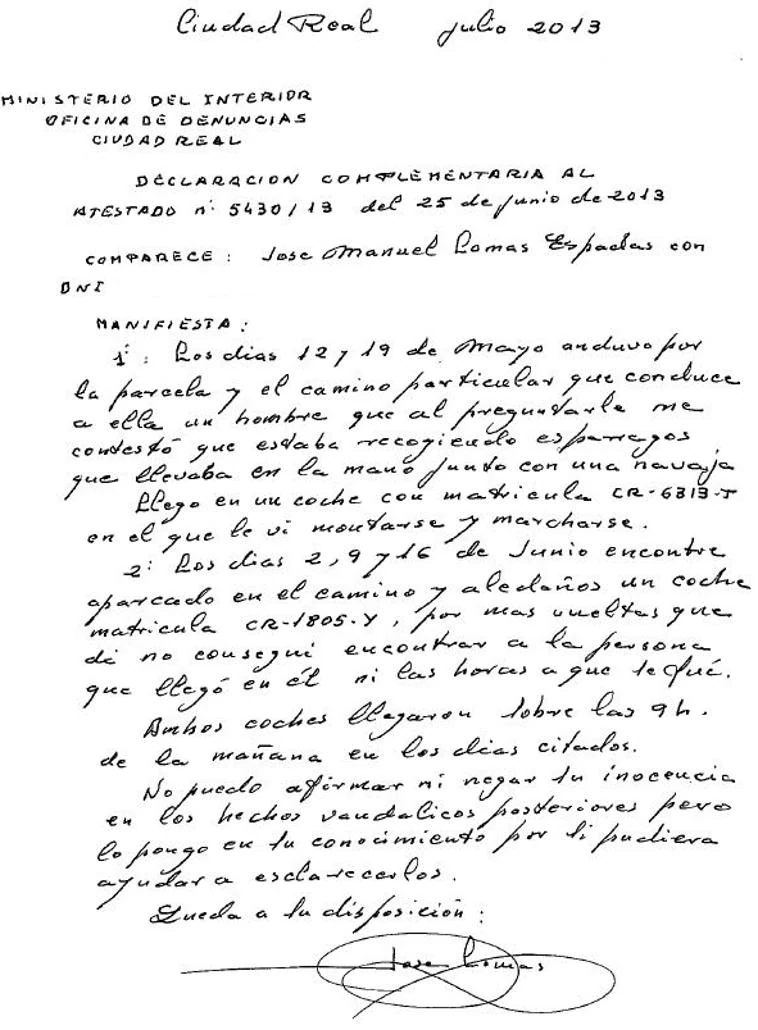 Ciudad Real julio 2013
MINISTERIO DEL INTERIOR
OFICINA DE DENUNCIAS
CIUDAD REAL
DECLARACION COMPLEMENTARIA AL
ATESTADO nº 5430/13 del 25 de junio de 2013
COMPARECE: Jose Manuel Lomas Espadas con
DNI
MANIFIESTA:
1º: Los dias 12 y 19 de Mayo anduvo por
la parcela y el camino particular que conduce
a ella un hombre que al preguntarle me
contestó que estaba recogiendo esparragos
que llevaba en la mano junto con una navaja
Llego en un coche con matricula CR-6313-T
en el que le vi montarse y marcharse.
2: Los dias 2, 9 y 16 de Junio encontre
aparcado en el camino y aledaños un coche
matricula CR-1805-Y, por mas vueltas que
di no consegui encontrar a la persona
que llegó en él ni las horas a que se fué.
Ambos coches llegaron sobre las 9h.
de la mañana en los dias citados.
No puedo afirmar ni negar su inocencia
en los hechos vandalicos posteriores pero
lo pongo en su conocimiento por si pudiera
ayudar a esclarecerlos.
Queda a su disposición:
Jose Lomas